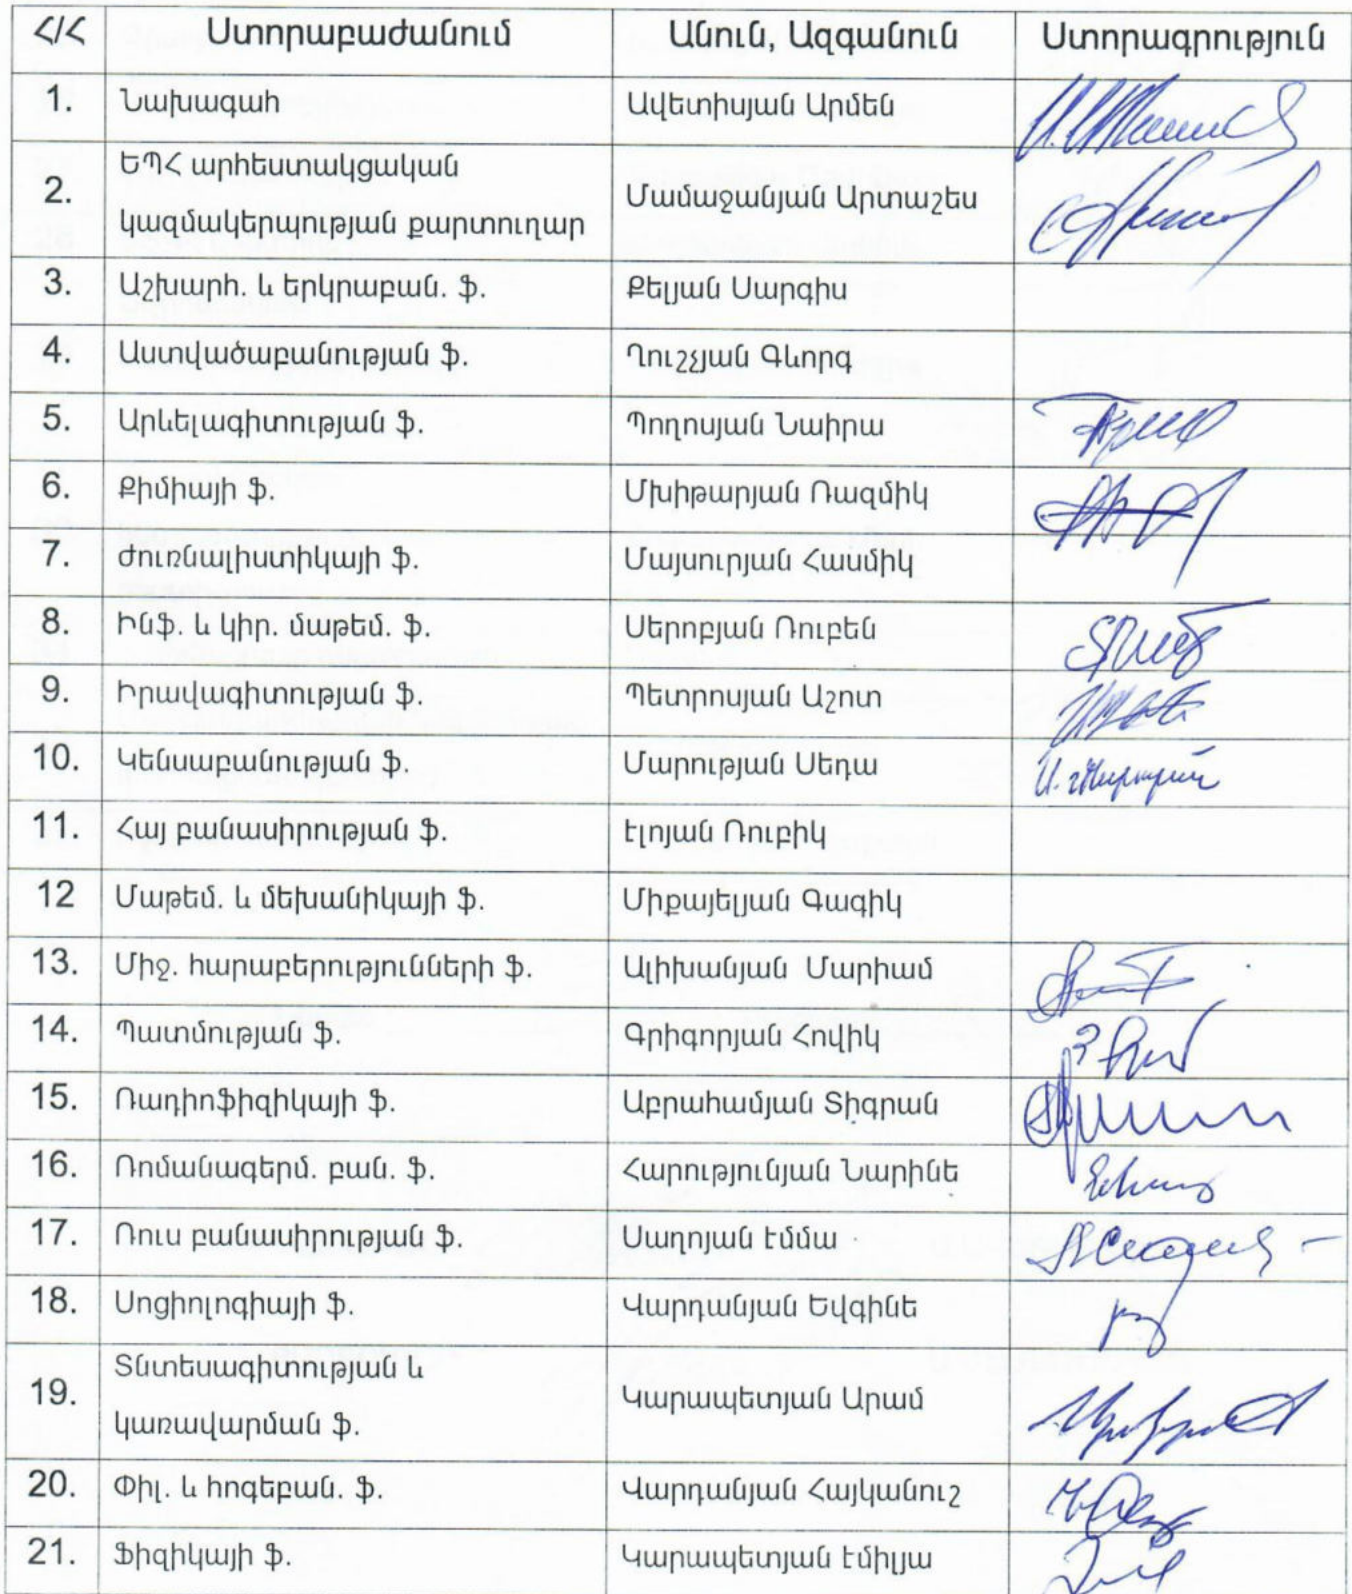 Հ/Հ Ստորաբաժանում Անուն, Ազգանուն Ստորագրություն
1. Նախագահ Ավետիսյան Արմեն
2. ԵՊՀ արհեստակցական
կազմակերպության քարտուղար Մամաջանյան Արտաշես
3. Աշխարհ. և երկրաբան. ֆ. Քելյան Սարգիս
4. Աստվածաբանության ֆ. Ղուշչյան Գևորգ
5. Արևելագիտության ֆ. Պողոսյան Նաիրա
6. Քիմիայի ֆ. Մխիթարյան Ռազմիկ
7. Ժուռնալիստիկայի ֆ. Մայսուրյան Հասմիկ
8. Ինֆ. և կիր. մաթեմ. ֆ. Սերոբյան Ռուբեն
9. Իրավագիտության ֆ. Պետրոսյան Աշոտ
10. Կենսաբանության ֆ. Մարության Սեդա
11. Հայ բանասիրության ֆ. Էլոյան Ռուբիկ
12 Մաթեմ. և մեխանիկայի ֆ. Միքայելյան Գագիկ
13. Միջ. հարաբերությունների ֆ. Ալիխանյան Մարիամ
14. Պատմության ֆ. Գրիգորյան Հովիկ
15. Ռադիոֆիզիկայի ֆ. Աբրահամյան Տիգրան
16. Ռոմանագերմ. բան. ֆ. Հարությունյան Նարինե
17. Ռուս բանասիրության ֆ. Սաղոյան Էմմա
18. Սոցիոլոգիայի ֆ. Վարդանյան Եվգինե
19. Տնտեսագիտության և
կառավարման ֆ. Կարապետյան Արամ
20. Փիլ. և հոգեբան. ֆ. Վարդանյան Հայկանուշ
21. Ֆիզիկայի ֆ. Կարապետյան Էմիլյա